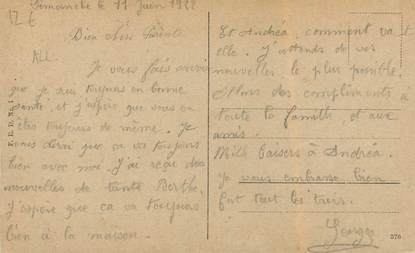 Dimanche le 11 Juin 1922
Bien chers Parents
Je vous fais savoir
que je suis toujours en bonne
santé, et j'espère que vous en
êtes toujours de même. Je
vous dirai que ça va toujours
bien avec moi. J'ai reçu des
nouvelles de tante Berthe,
J'espère que ça va toujours
bien à la maison.
Et Andréa, comment va t
elle. J'attends de vos
nouvelles le plus possible.
des compliments à
toute la famille, et aux
amis.
Mille baisers à Andréa.
Je vous embrasse bien
fort tout les trois.
Georges
376